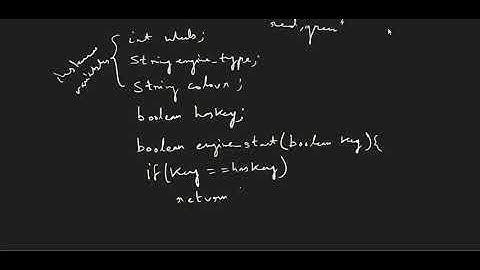 red, green"
int wheels;
String engine_type;
String colour;
instance variables
boolean haskey;
boolean engine_start(boolean key){
if(key==haskey)
return